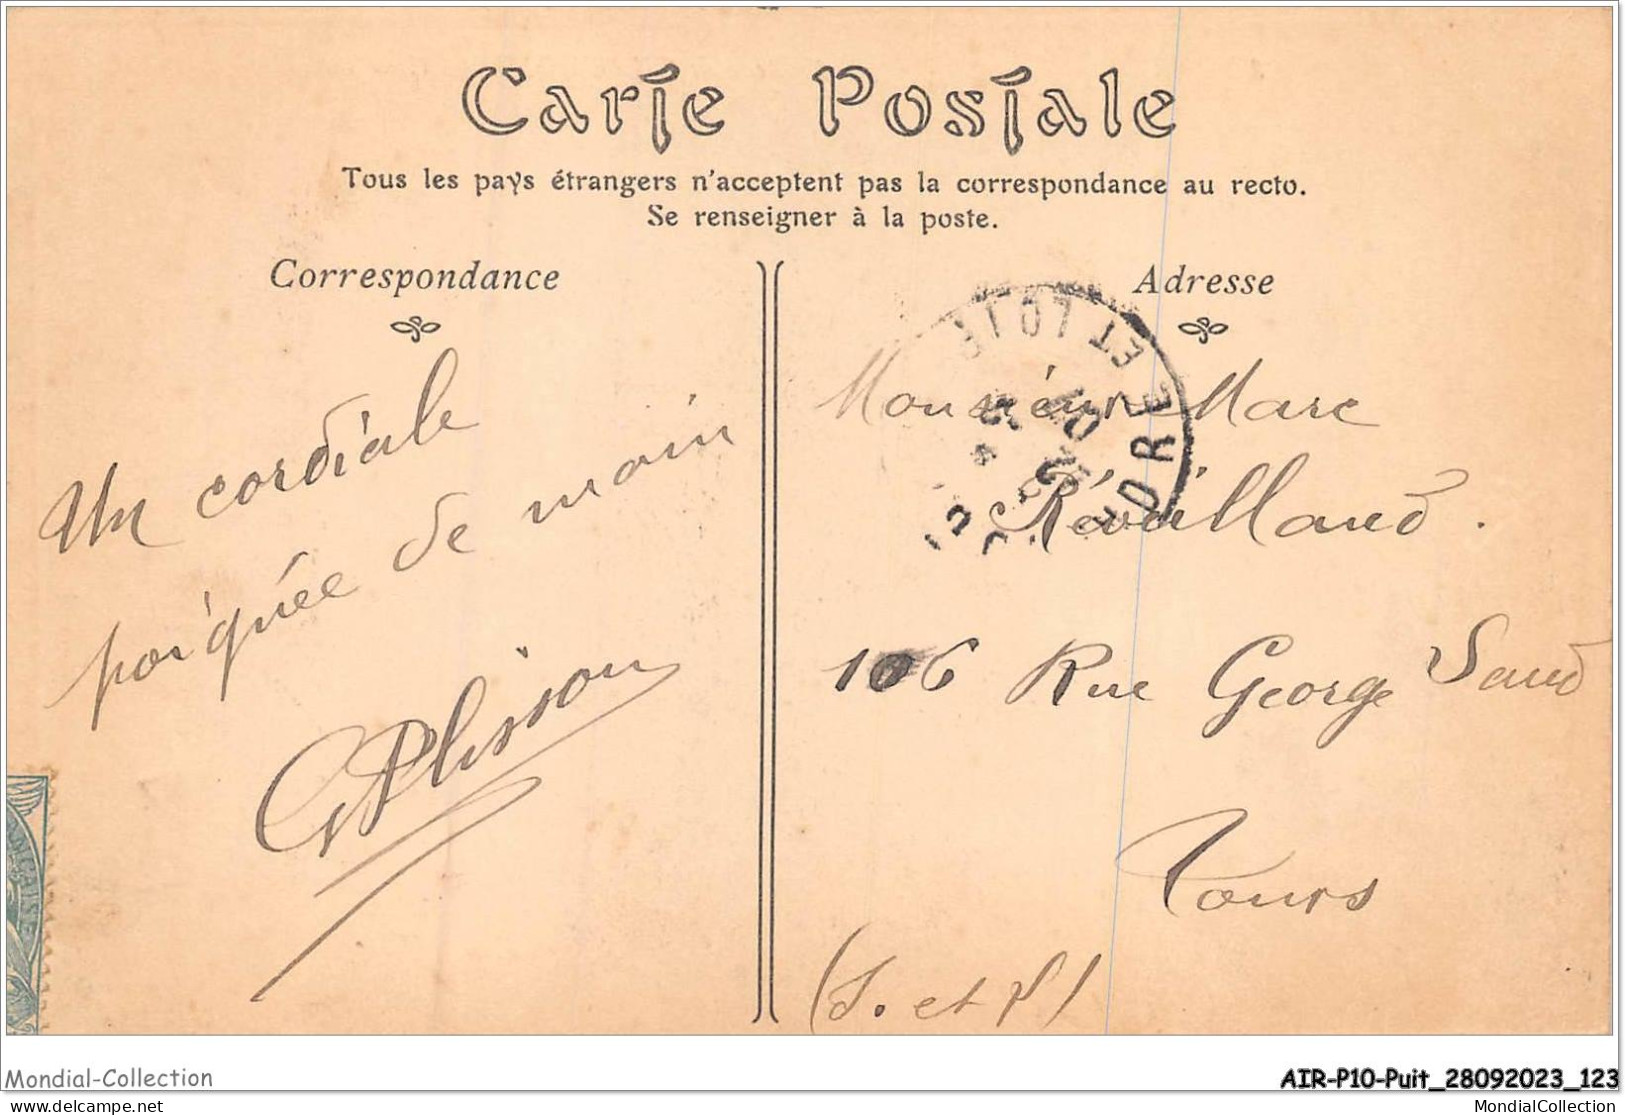 Carte Postale
Tous les pays étrangers n'acceptent pas la correspondance au recto.
Se renseigner à la poste.
Correspondance
Adresse
Un cordiale
poignée de main
GPlisson
Monsieur Marc
Révaillaud.
106 Rue George Sand
Tours
(I. et L)
INDRE ET LOIRE
Mondial-Collection
AIR-P10-Puit_28092023_123
www.delcampe.net
MondialCollection